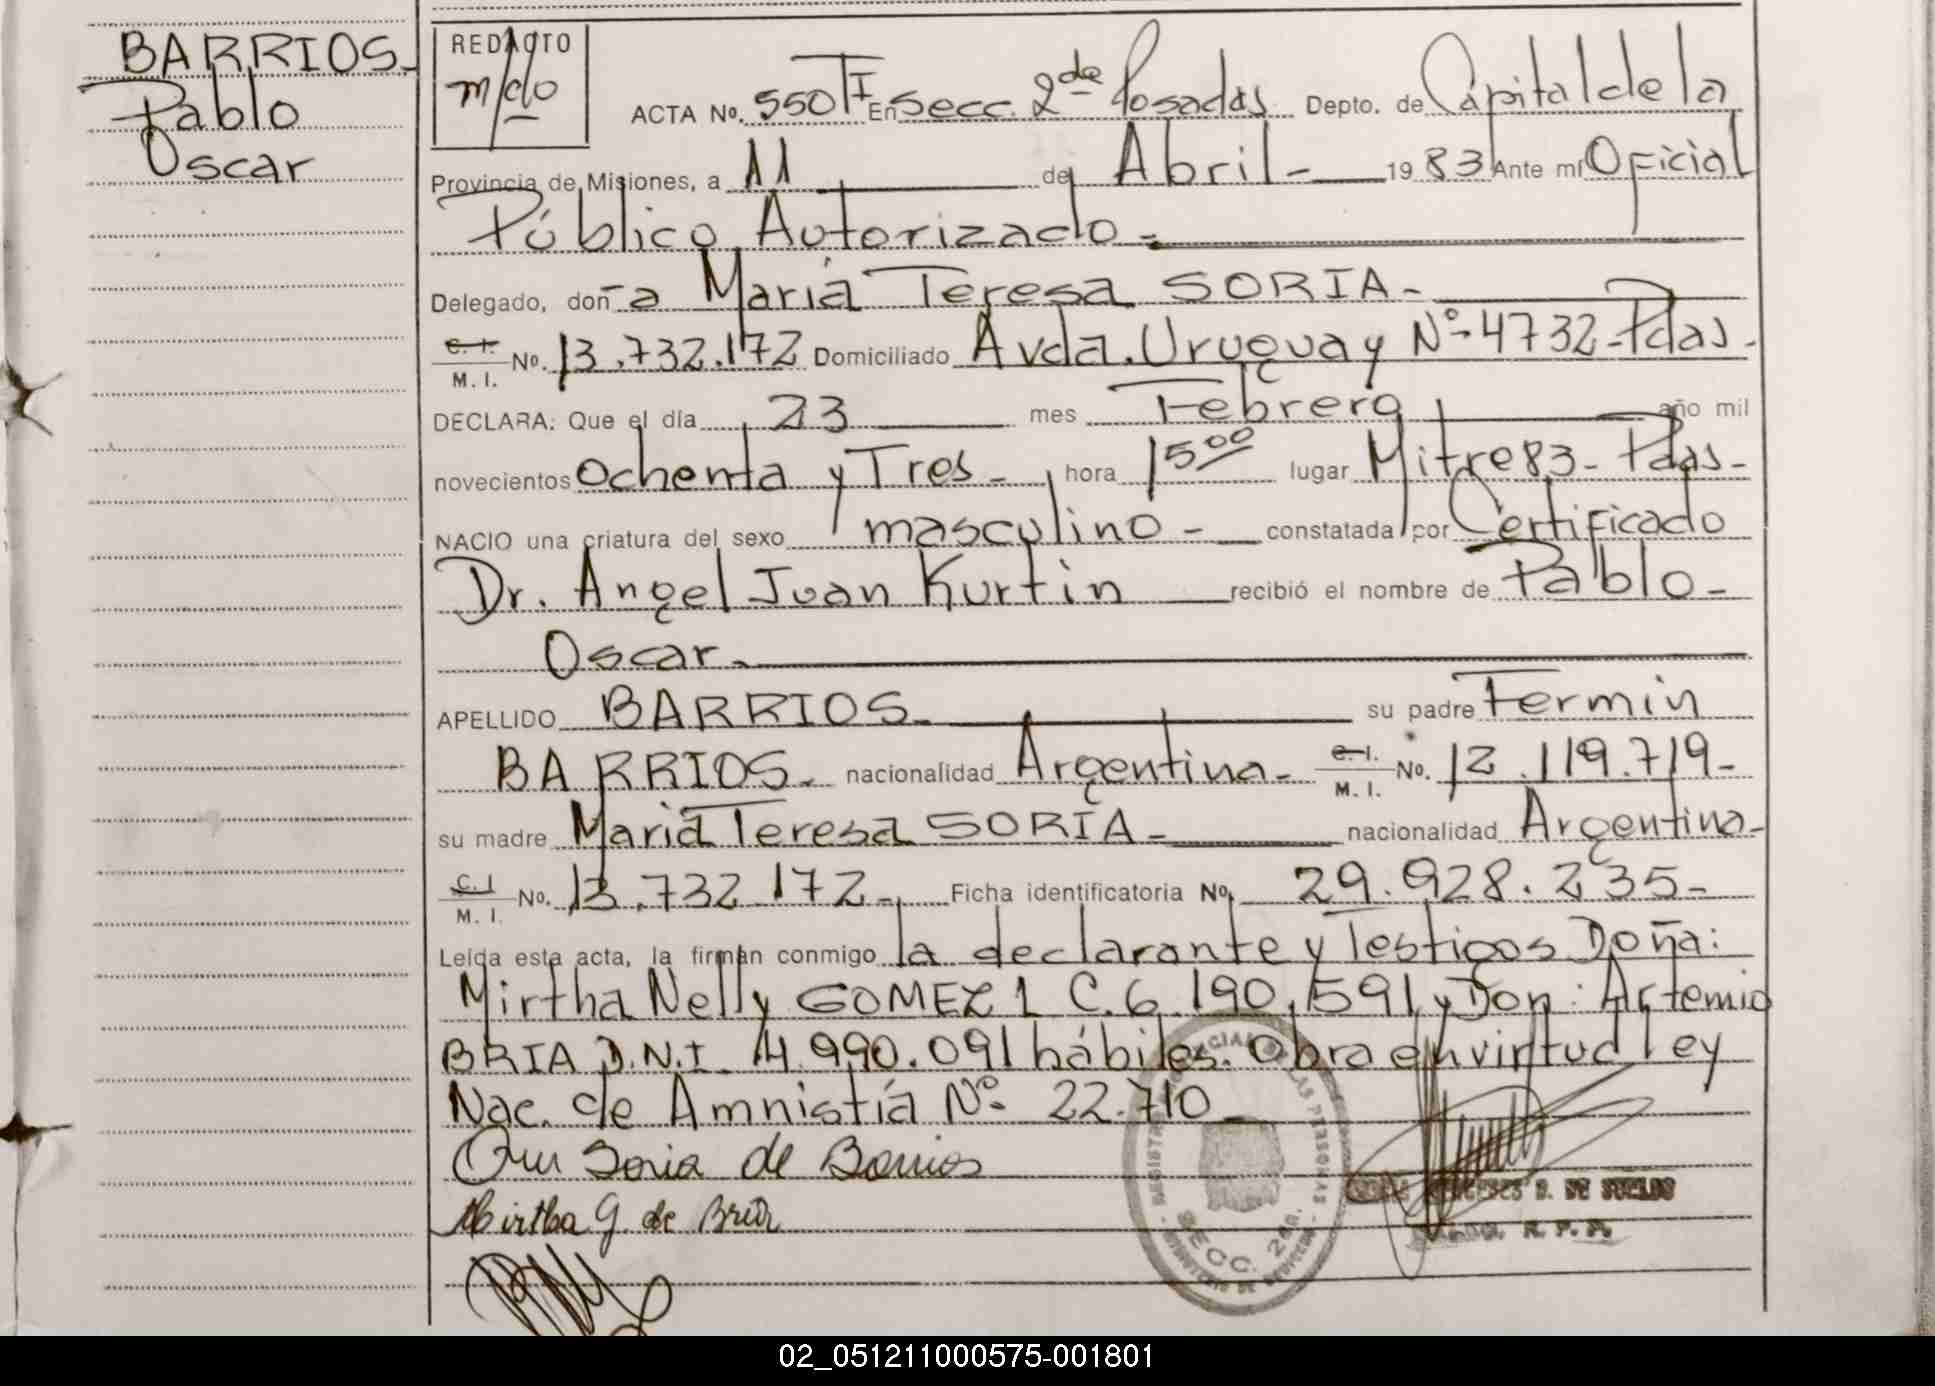 BARRIOS-
Pablo
Oscar
REDACTO
m/do
ACTA No. 550 TI En Secc. 2da Posadas Depto. de Capital de la
Provincia de Misiones, a 11 de Abril - 1983 Ante mí Oficial
Público Autorizado -
Delegado, don-a María Teresa SORIA -
C. I. M. I. No. 13.732.172 Domiciliado Avda. Uruguay Nº 4732 - Pdas -
DECLARA: Que el día 23 mes Febrero año mil
novecientos ochenta y Tres - hora 15 00 lugar Mitre 83 - Pdas -
NACIO una criatura del sexo masculino - constatada por Certificado
Dr. Angel Juan Kurtin recibió el nombre de Pablo -
Oscar -
APELLIDO BARRIOS - su padre Fermin
BARRIOS - nacionalidad Argentina - C. I. M. I. No. 12.119.719 -
su madre María Teresa SORIA - nacionalidad Argentina -
C. I M. I. No. 13.732.172 - Ficha identificatoria No. 29.928.235 -
Leída esta acta, la firman conmigo la declarante y Testigos Doña:
Mirtha Nelly GOMEZ L C. 6.190.591 y Don: Artemio
BRIA D.N.I. 14.990.091 hábiles. Obra en virtud Ley
Nac. de Amnistía Nº 22.710 -
Soria de Barrios
Mirtha G. de Bria
REGISTRO PROVINCIAL DE LAS PERSONAS
SECC. 2da.
DE SUELDO
R. P. P.
02_051211000575-001801